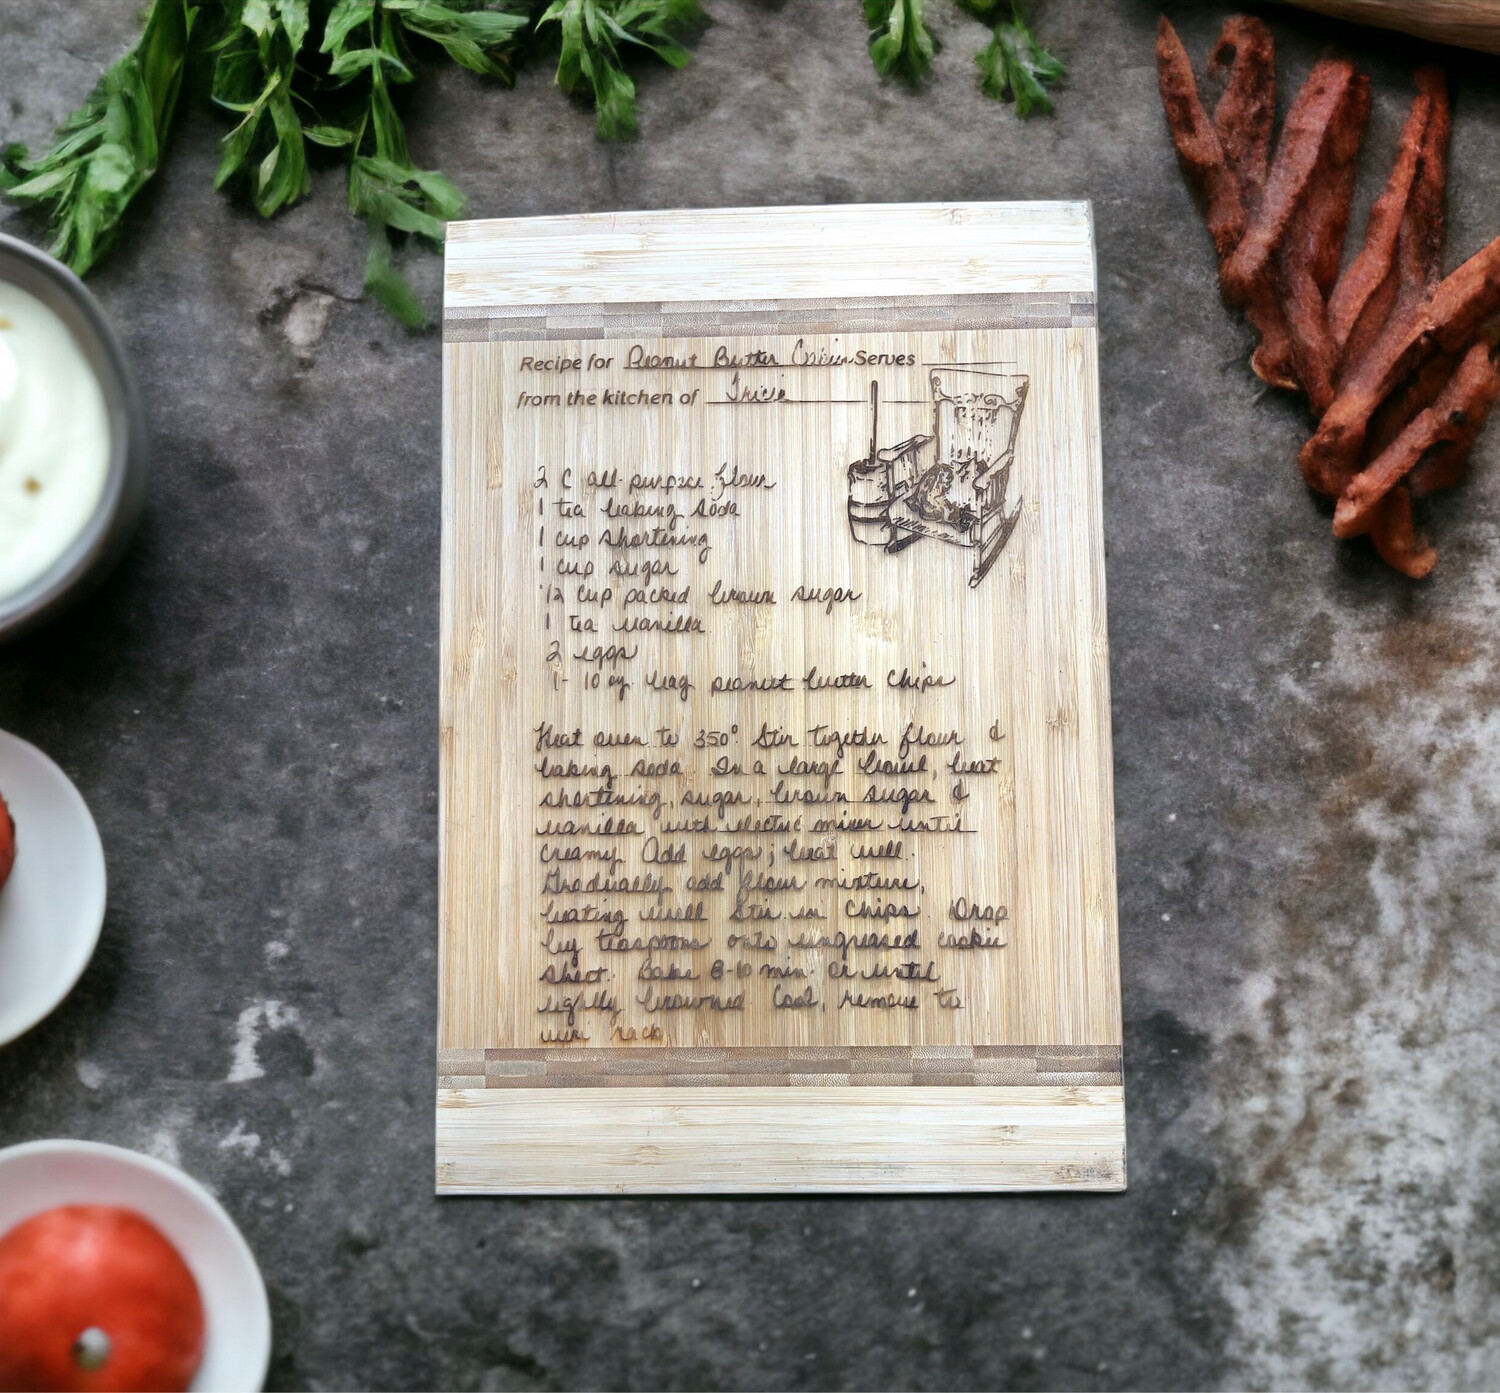 Recipe for Peanut Butter Serves
from the kitchen of Tricia
2 C all-purpose flour
1 tea baking soda
1 cup shortening
1 cup sugar
1/2 cup packed brown sugar
1 tea vanilla
2 eggs
1- 10 oz. bag peanut butter chips
Heat oven to 350° Stir together flour &
baking soda. In a large bowl, beat
shortening, sugar, brown sugar &
vanilla with electric mixer until
creamy. Add eggs; beat well.
Gradually add flour mixture,
beating well. Stir in chips. Drop
by teaspoons onto ungreased cookie
sheet. Bake 8-10 min. or until
browned. Cool, remove to
rack.